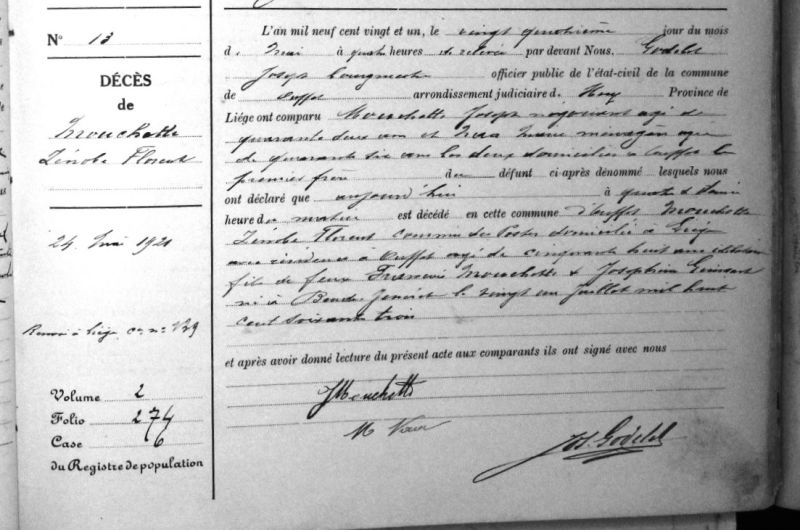 N° 13
DÉCÈS
de
Mouchette
Zénobe Florent
24 Mai 1921
à Liége
Volume 2
Folio 274
Case 6
du Registre de population
L'an mil neuf cent vingt et un, le vingt quatrième jour du mois
de Mai à quatre heures de relevée par devant Nous, Godelet
Joseph bourgmestre officier public de l'état-civil de la commune
de Ouffet arrondissement judiciaire de Huy Province de
Liége ont comparu Mouchette Joseph négociant agé de
quarante deux ans et Marie ménagère agée
de quarante six ans les deux domiciliés à Ouffet le
premier frère du défunt ci-après dénommé lesquels nous
ont déclaré que aujourd'hui à quatre & demi
heure du matin est décédé en cette commune d'Ouffet Mouchette
Zénobe Florent commis des Postes domicilié à Liége
avec résidence à Ouffet agé de cinquante huit ans célibataire
fils de feux François Mouchette & Joséphine
né à Bende Jenêret le vingt un Juillet mil huit
cent soixante trois
et après avoir donné lecture du présent acte aux comparants ils ont signé avec nous
JMouchette
M
Jos. Godelet